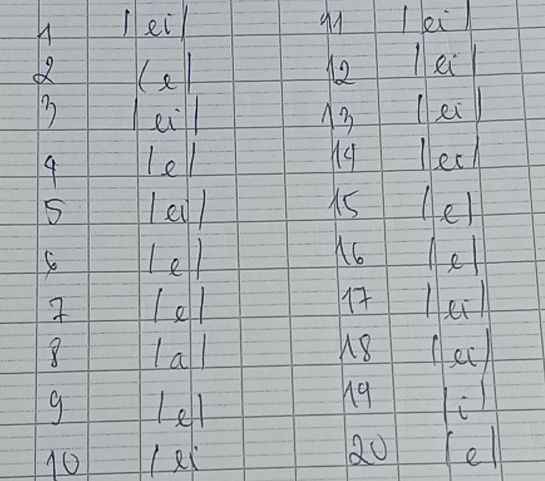 1 /ei/ 11 /ei/
2 /e/ 12 /ei/
3 /ei/ 13 /ei/
4 /e/ 14 /ei/
5 /ei/ 15 /e/
6 /e/ 16 /e/
7 /e/ 17 /ei/
8 /a/ 18 /ei/
9 /e/ 19 /i/
10 /ei 20 /e/